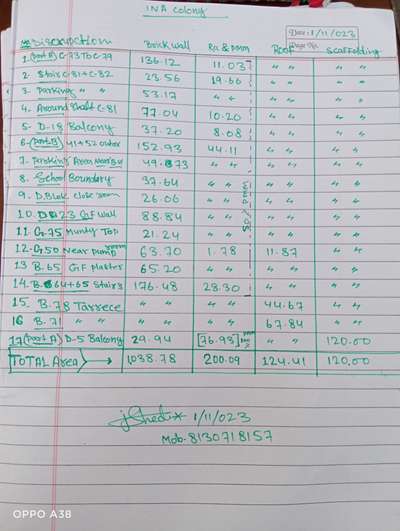 INA Colony
Date: 1/11/023
Discruption Brick wall Roof Scaffolding
1. (Part B) C-73 To C-79 136.12 11.03 " " " "
2. Stair C-81+C-82 23.56 19.66 " " " "
3. Parking " " 53.17 " " " " " "
4. Around Shaft C-81 77.04 10.20 " " " "
5. D-18 Balcony 37.20 8.08 " " " "
6. (Part B) 41+52 outer 152.93 44.11 " " " "
7. Parking Area 49.873 " " " " " "
8. School Boundary 37.64 " " " " " "
9. D. Blok Clobe room 26.06 " " " " " "
10. D 23 G.F wall 88.84 " " " " " "
11. G.75 Munty Top 21.24 " " " " " "
12. G.50 Near pump room 63.70 1.78 11.87 " "
13 B.65 G.F Plaster 65.20 " " " " " "
14. B.64+65 Stairs 176.48 28.30 " " " "
15. B.78 Tarrece " " " " 44.67 " "
16 B.71 " " " " 67.84 " "
17 (Part A) D-5 Balcony 29.94 [76.93] " " 120.00
TOTAL Area → 1038.78 200.09 124.41 120.00
1/11/023
Mob. 8130718157
OPPO A38